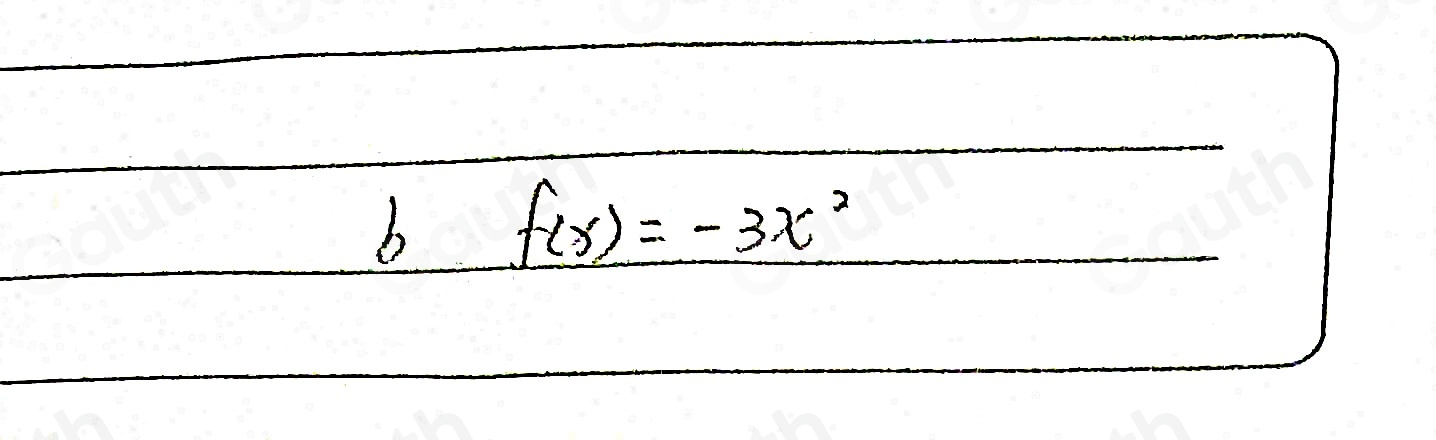 b f(x) = -3x²